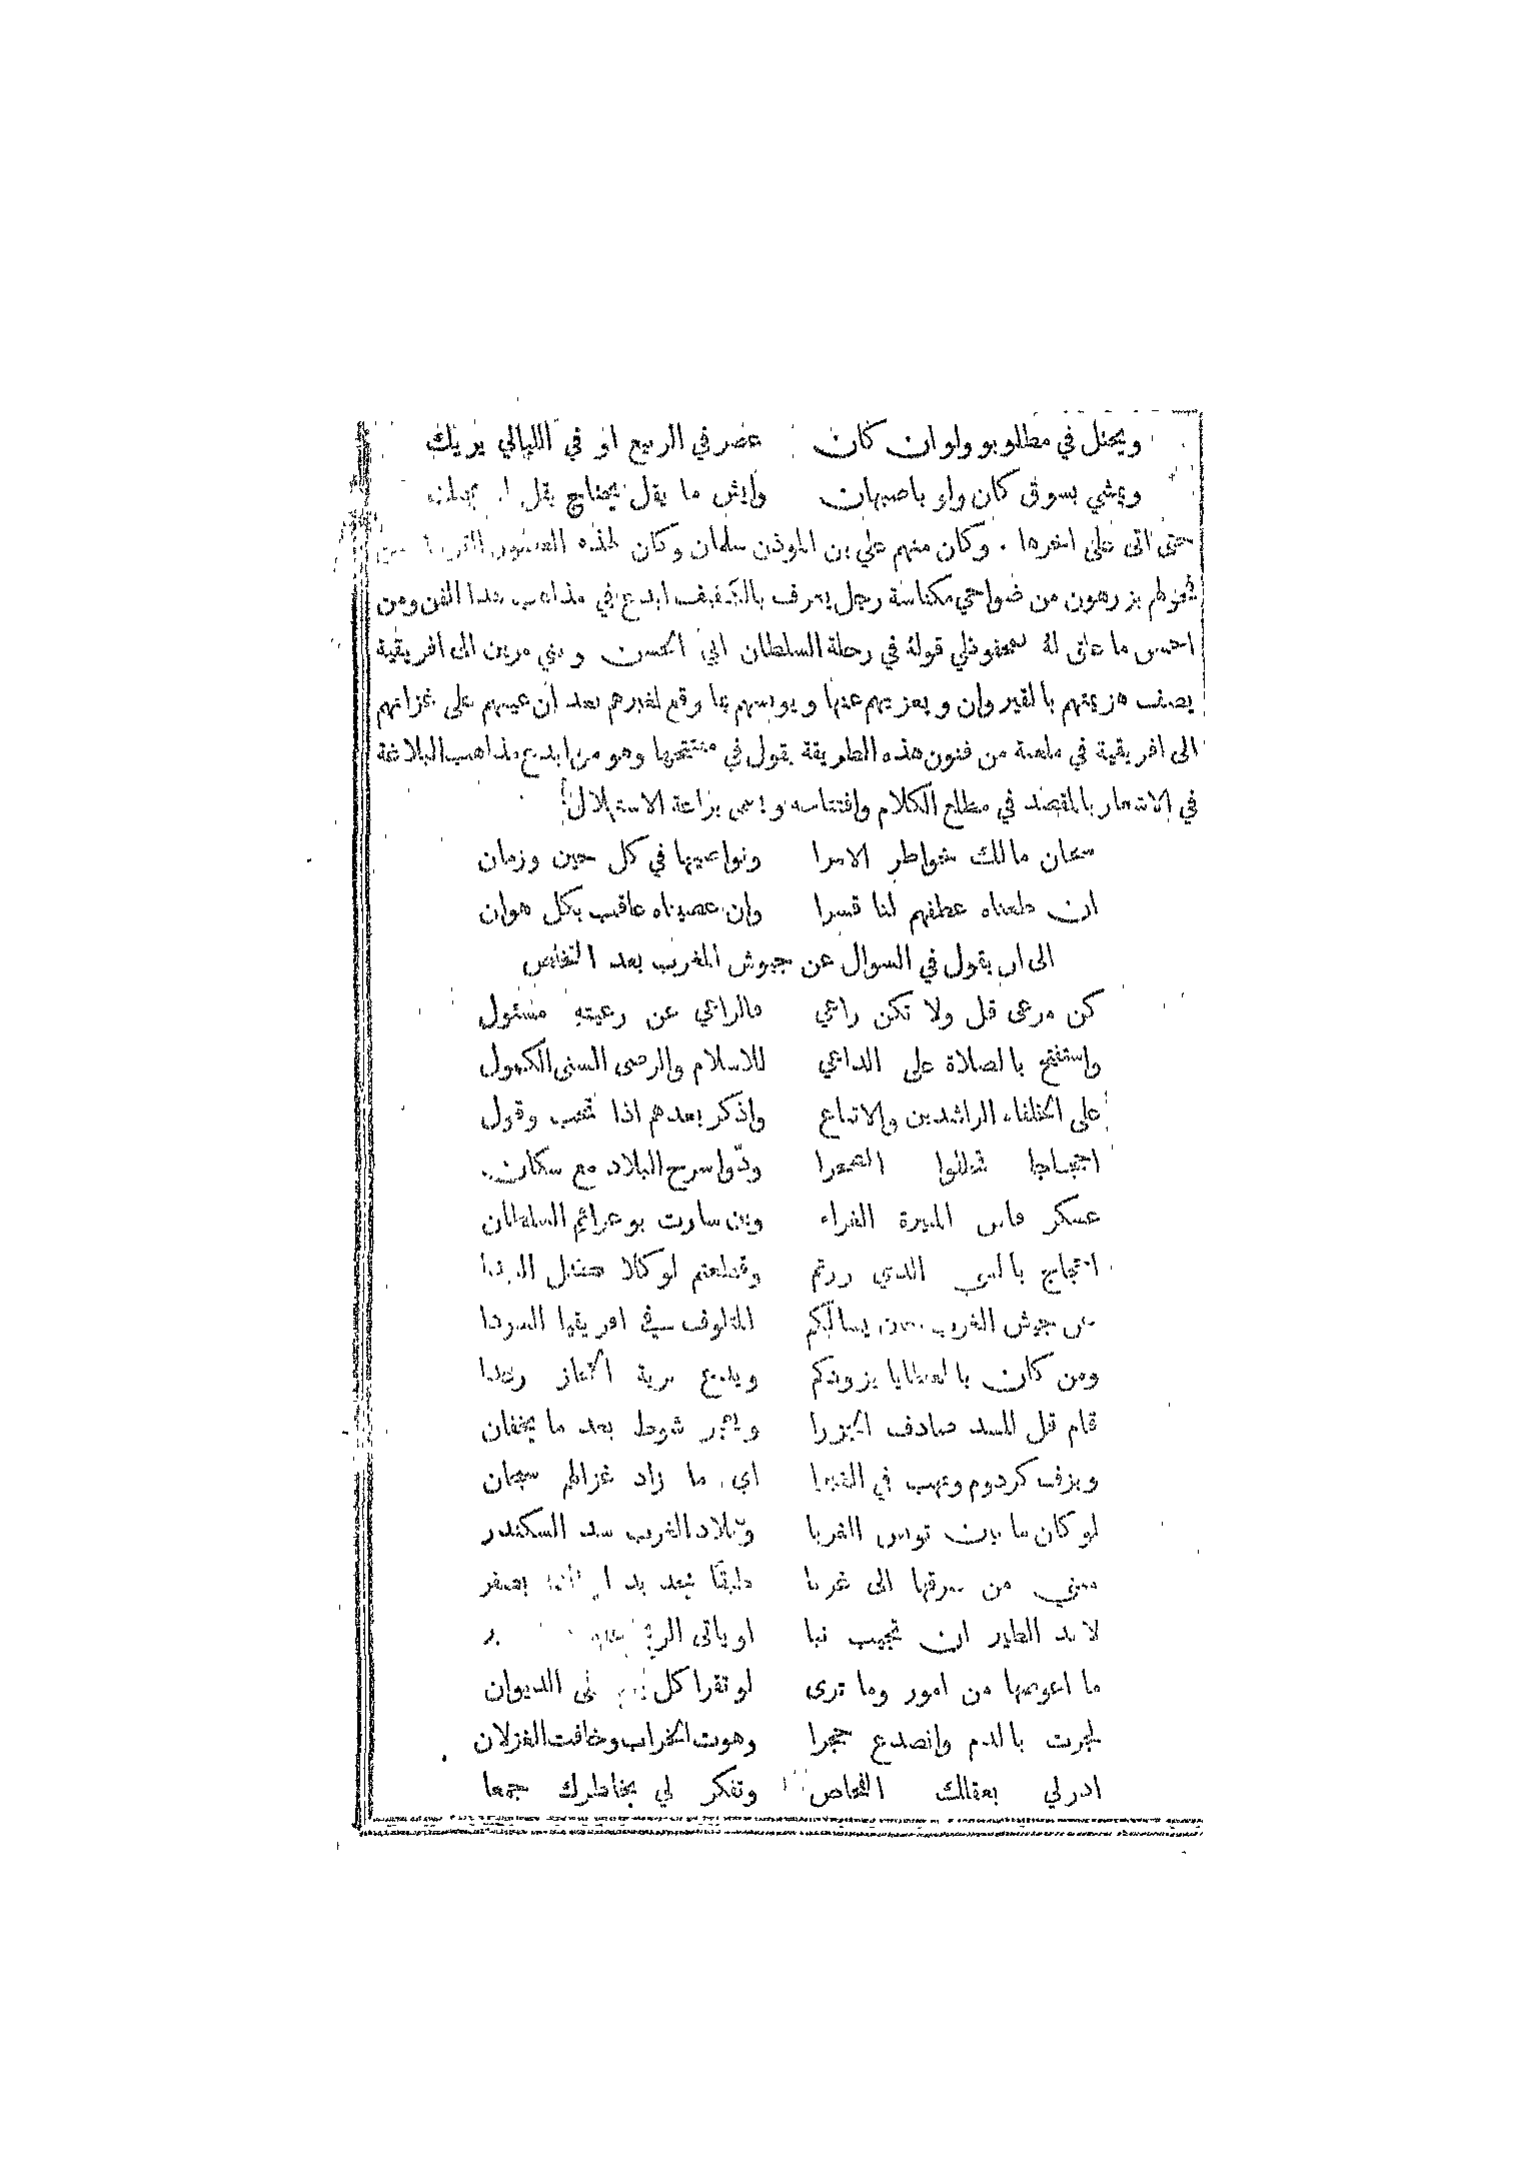 ويحتل في مطلوبو ولو ان كان عصر في الربيع او في الليالي يريك
ويمشي بسوق كان ولو باصبهان وايش ما يقل يحتاج يقل
حتى اتى على اخرها . وكان منهم علي بن الموذن سلمان وكان لهذه العصور
بزرهون من ضواحي مكناسة رجل يعرف بالكفيف ابدع في مذاهب هذا الفن ومن
احسن ما علق له بمحفوظي قوله في رحلة السلطان ابي الحسن وبني مرين الى افريقية
يصف هزيمتهم بالقيروان ويعزيهم عنها ويونسهم بما وقع لغيرهم بعد ان عيبهم على غزاتهم
الى افريقية في ملعبة من فنون هذه الطريقة يقول في مفتتحها وهو من ابدع مذاهب البلاغة
في الاشعار بالمقصد في مطلع الكلام وافتتاحه ويسمى براعة الاستهلال
سبحان مالك خواطر الامرا ونواصيها في كل حين وزمان
ان طعناه عطفهم لنا قسرا وان عصيناه عاقب بكل هوان
الى ان يقول في السوال عن جيوش المغرب بعد التخلص
كن مرعى قل ولا تكن راعي فالراعي عن رعيته مسئول
واستفتح بالصلاة على الداعي للاسلام والرضى السنى الكمول
على الخلفاء الراشدين والاتباع واذكر بعدهم اذا تحب وقول
احجاجا تخللوا الصحرا ودوا سرح البلاد مع سكان
عسكر فاس المنيرة الغراء وين سارت بو عزائم السلطان
احجاج بالنبي الذي زرتم وقطعتم لو كلا
عن جيش الغرب يسالكم المتلوف في افريقيا السودا
ومن كان بالعطايا يزودكم ويدع برية الحجاز رغدا
قام قل للسد صادف الجزرا شوط بعد ما يخفان
ويزف كردوم وتهب في الغبرا اي ما زاد غزالهم سبحان
لو كان ما بين تونس الغربا وبلاد الغرب سد السكندر
مبني من شرقها الى غربا طبقا بصفر
لا بد الطير ان تجيب نبا او ياتى الريح
ما اعوصها من امور وما ترى لو تقرا كل على الديوان
لجرت بالدم وانصدع حجرا وهوت الخراب وخافت الغزلان
ادر لي بعقلك الفحاص وتفكر لي بخاطرك جمعا